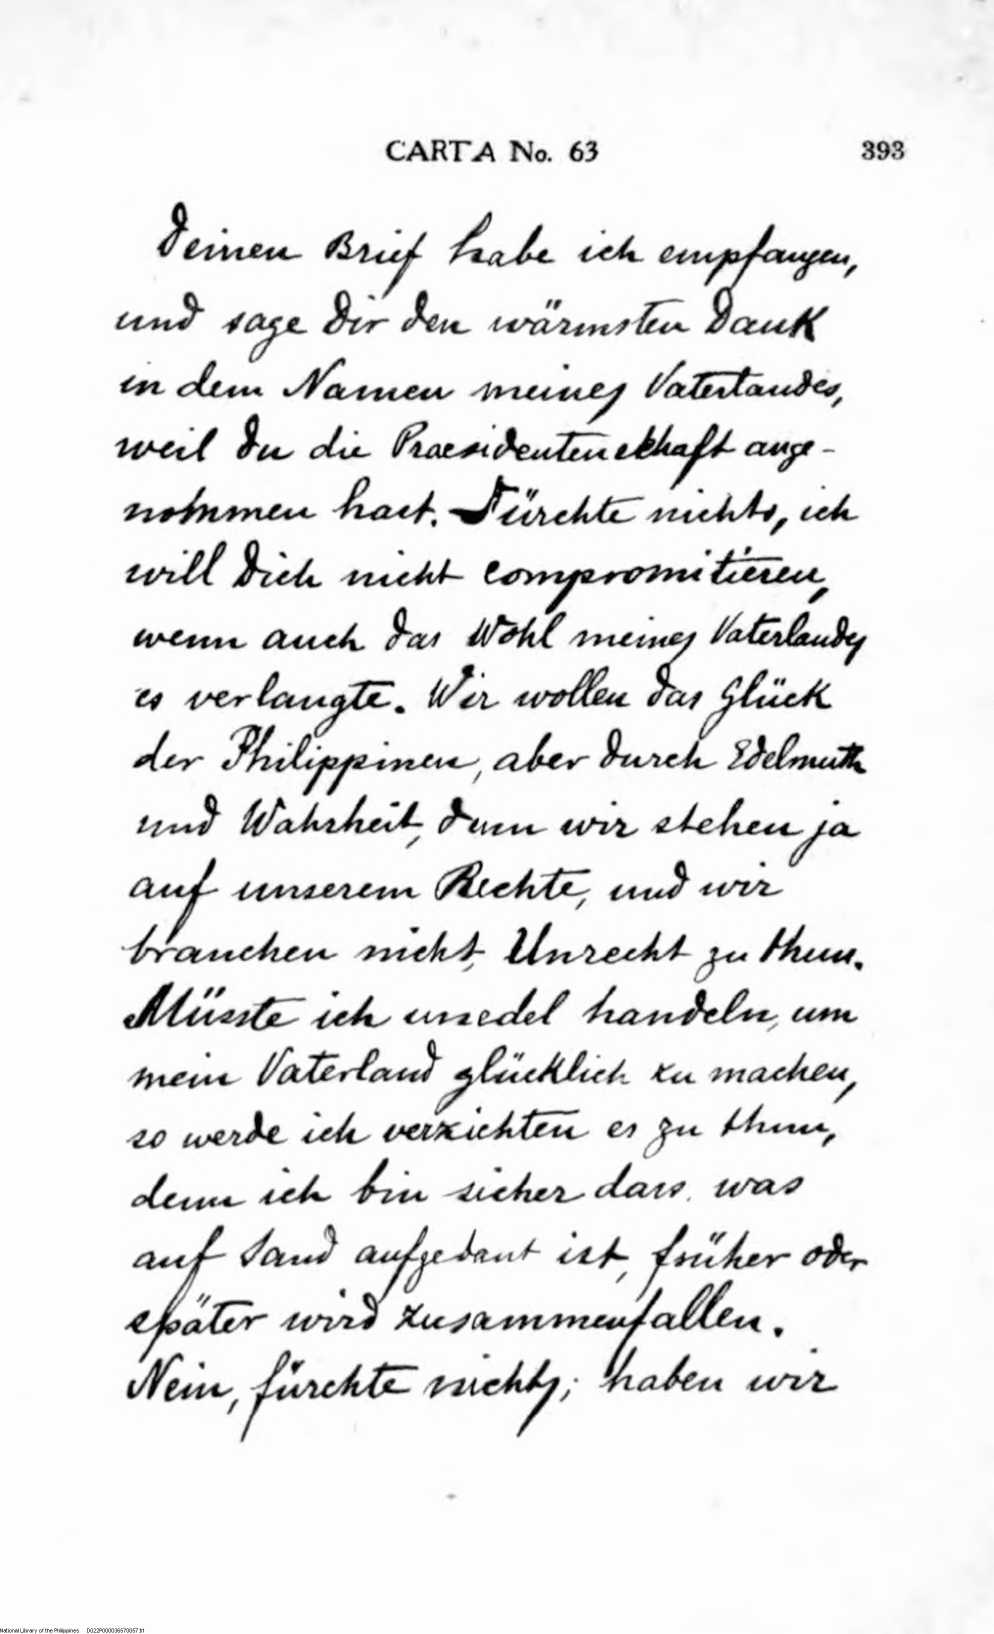 CARTA No. 63 393
Deinen Brief habe ich empfangen,
und sage Dir den wärmsten Dank
in dem Namen meines Vaterlandes,
weil du die Praesidentenschaft ange-
nommen hast. Fürchte nichts, ich
will Dich nicht compromitieren,
wenn auch das Wohl meines Vaterlandes
es verlangte. Wir wollen das Glück
der Philippinen, aber durch Edelmuth
und Wahrheit, denn wir stehen ja
auf unserem Rechte, und wir
brauchen nicht, Unrecht zu thun.
Müsste ich unedel handeln, um
mein Vaterland glücklich zu machen,
so werde ich verzichten es zu thun,
denn ich bin sicher dass, was
auf Sand aufgebaut ist, früher oder
später wird zusammenfallen.
Nein, fürchte nichts; haben wir
National Library of the Philippines D022P00003657005T.tif